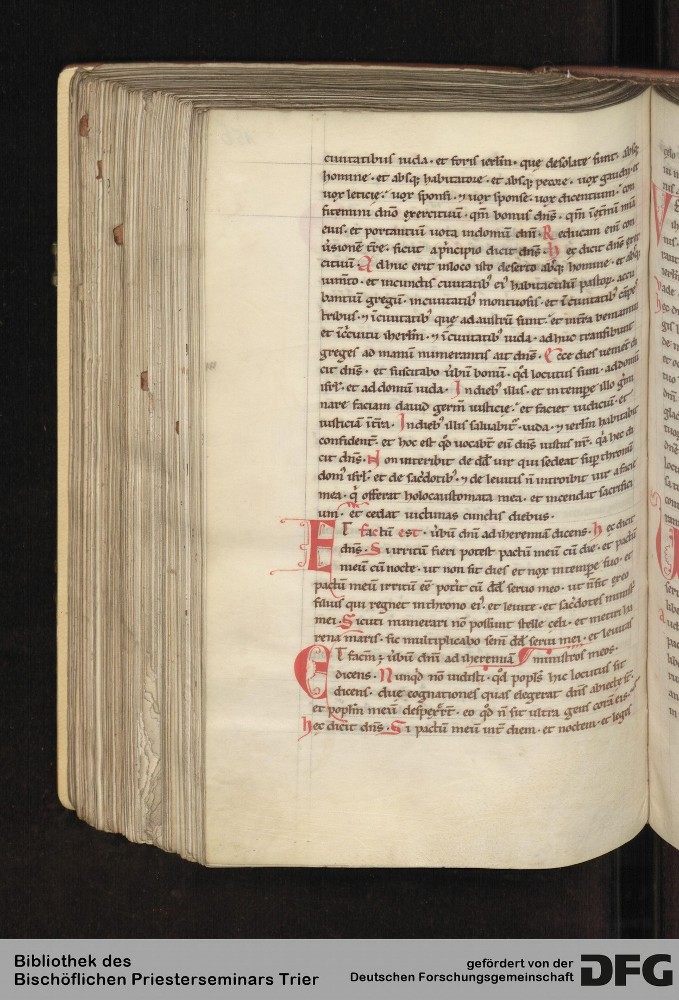 ciuitatibus iuda · et foris ierl̄m · que desolate sunt · absq;
homine · et absq; habitatore · et absq; pecore · uox gaudij · et
uox leticie · uox sponsi · ⁊ uox sponse · uox dicentium · con
fitemini dn̄o exercituū · qm̄ bonus dn̄s · qm̄ īet̄nū mīa
eius · et portantiū uota indomū dn̄i · Reducam enī con
ūsionē tr̄e · sicut aprincipio dicit dn̄s · Hec dicit dn̄s exer
cituū · Adhuc erit inloco isto deserto absq; homine · et absq;
iumēto · et incunctis ciuitatibꝰ eiꝰ habitaculū pastoꝝ · accu
bantiū gregū · inciuitatibꝰ montuosis · et īciuitatibꝰ cāpes
tribus · ⁊ īciuitatibꝰ que adaustrū sunt · et intra beniamin
et īcircuitu iherl̄m · ⁊ īciuitatibꝰ iuda · adhuc transibunt
greges ad manū numerantis ait dn̄s · Ecce dies ueniēt di
cit dn̄s · et suscitabo ūbū bonū · qđ locutus sum · addomū
isrl̄ · et ad domū iuda · In diebꝰ illis · et intempe illo ḡmi
nare faciam dauid germē iusticie · et faciet iudiciū · et
iusticiā īt̄ra · In diebꝰ illis saluabit̄ · iuda · ⁊ ierl̄m habitabit
confident̄ · et hoc est qđ uocabt̄ eū dn̄s iustus nr̄ · qa hec di
cit dn̄s · Non interibit de dd̄ uir qui sedeat suꝑ thronū
domꝰ isrl̄ · et de sac̄dotibꝰ · ⁊ de leuitis n̄ interibit uir afacie
mea · qi offerat holocaustomata mea · et incendat sacrifici
um · et cedat uictimas cunctis diebus ·
ET factū est · ūbū dn̄i ad iheremiā dicens · Hec dicit
dn̄s · Si irritū fieri potest pactū meū cū die · et pactū
meū cū nocte · ut non sit dies et nox intempe suo · et
pactū meū irritū eē potit̄ cū dd̄ seruo meo · ut n̄ sit exeo
filius qui regnet inthrono eiꝰ · et leuite · et sac̄dotes ministri
mei · Sicuti numerari nō possunt stelle celi · et metiri ha
rena maris · sic multiplicabo sem̄ dd̄ serui mei · et leuitas
ET factū ē ūbū dn̄i ad iheremiā ministros meos ·
dicens · Nunqđ nō uidisti · qđ popls̄ hic locutus sit
dicens · due cognationes quas elegerat dn̄s abiecte st̄ ·
et popl̄m meū despexer̄t · eo qđ n̄ sit ultra gens corā eis ·
Hec dicit dn̄s · Si pactū meū int̄ diem · et noctem · et leges
Bibliothek des
Bischöflichen Priesterseminars Trier
gefördert von der
Deutschen Forschungsgemeinschaft
DFG